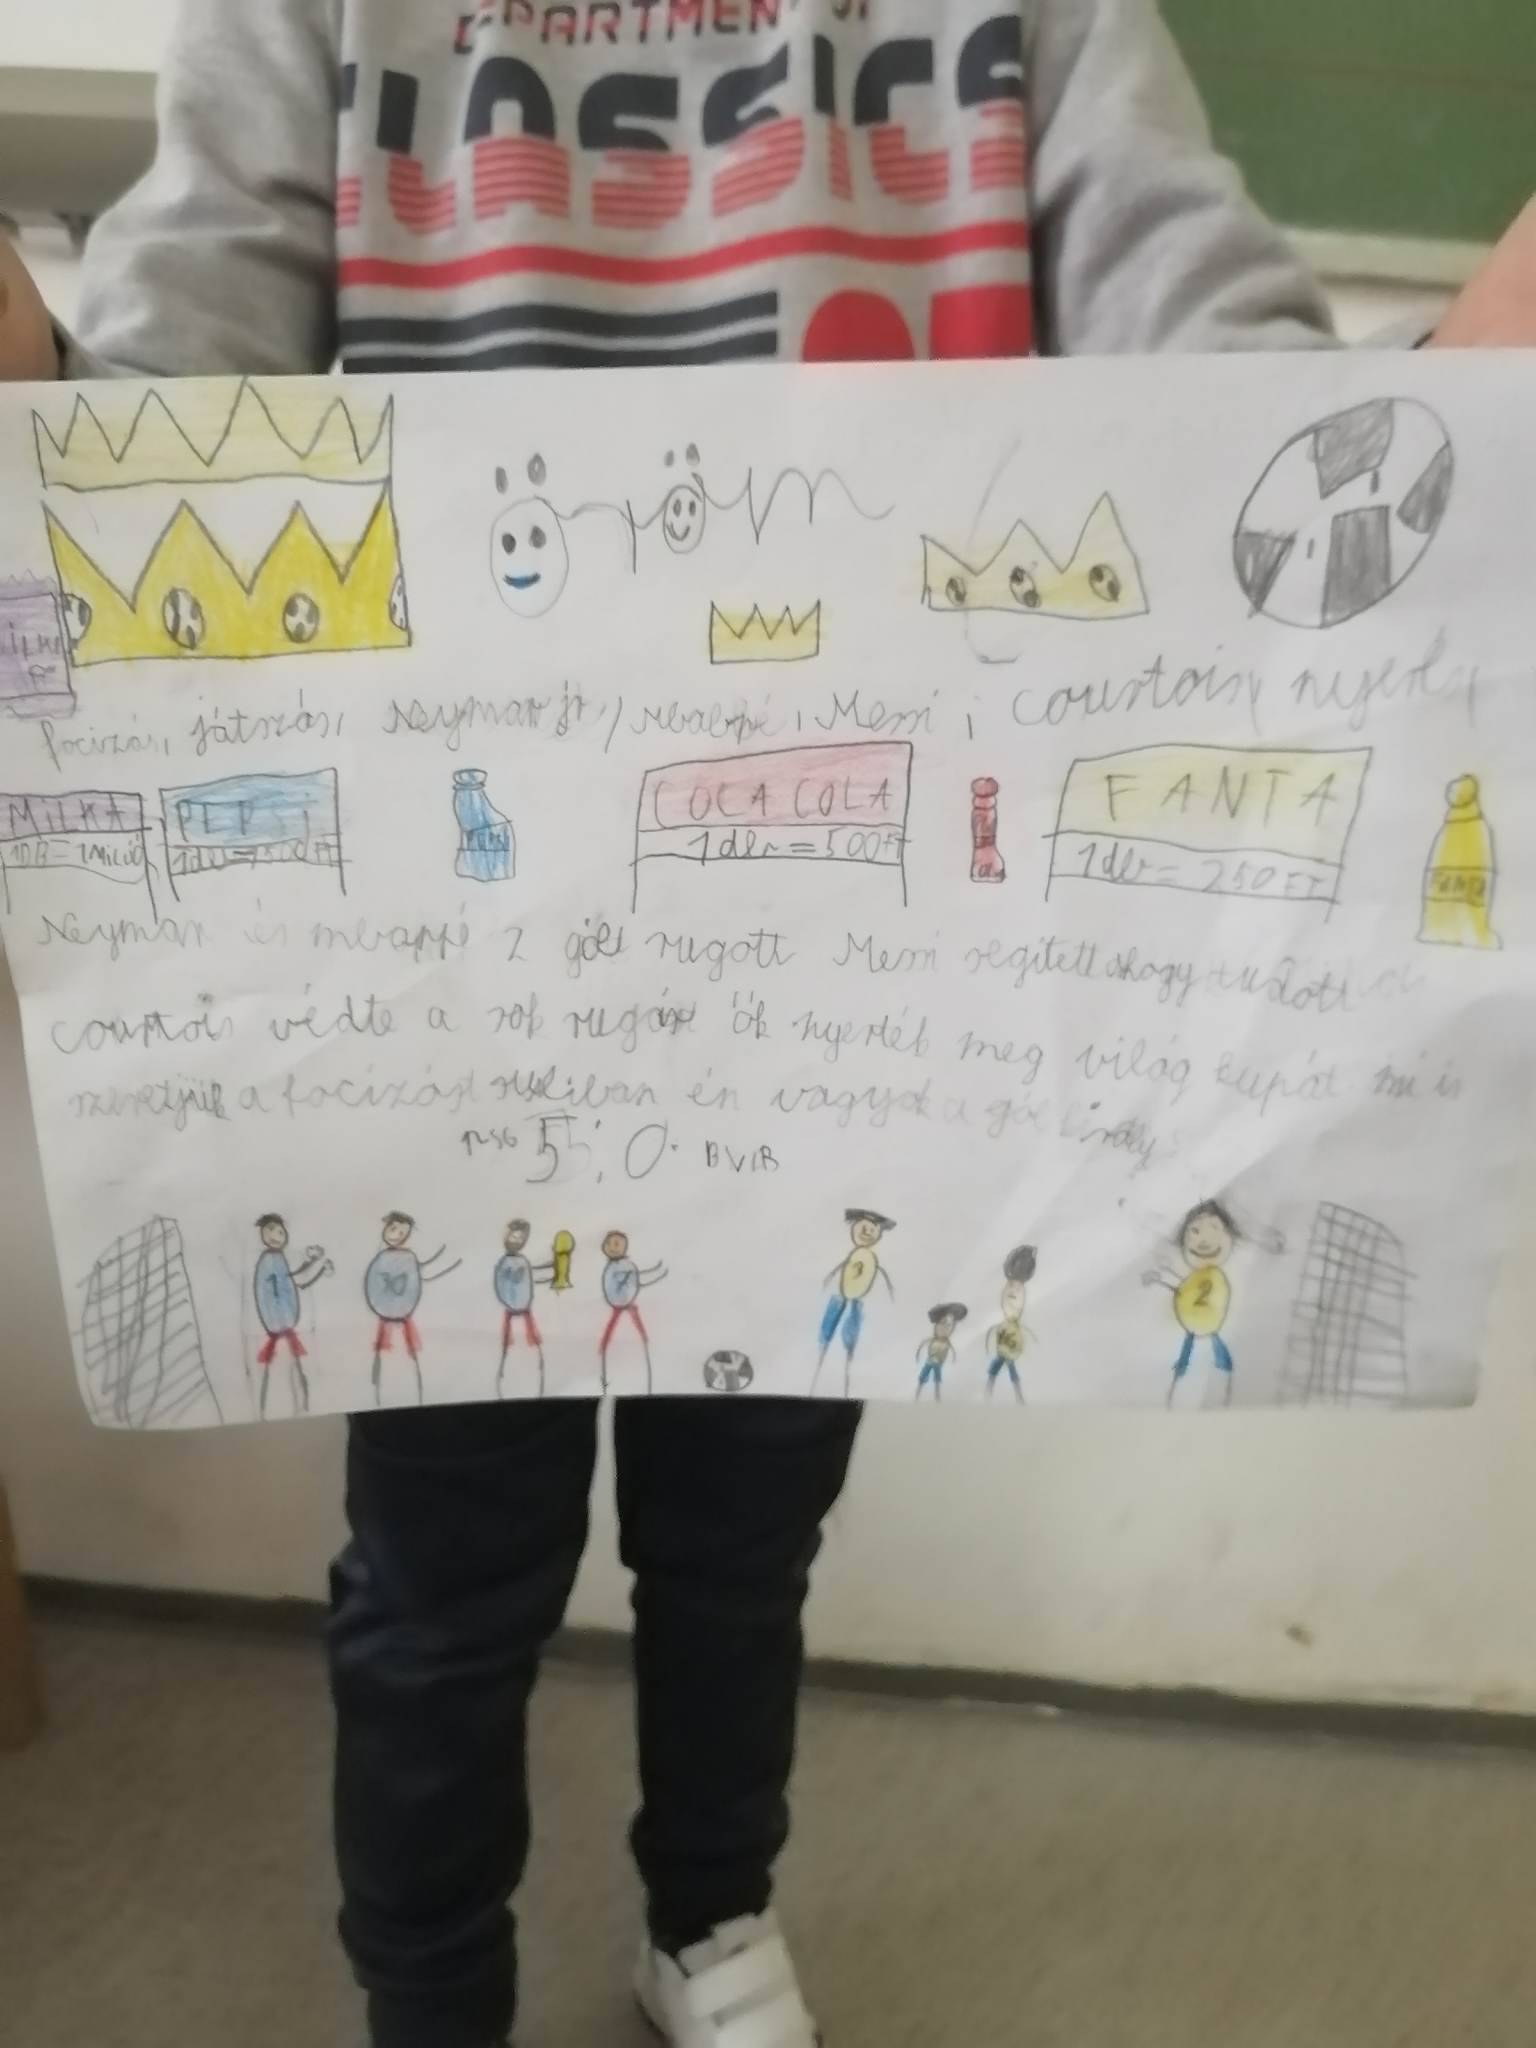 DEPARTMENT OF
CLASSICS
öröm
MILKA
focizás, játszás, Neymar jr, Mbappé, Messi, courtois, nyerés,
MILKA PEPSI COCA COLA FANTA
1DB=1MILLIÓ 1dl=500FT 1dl=500FT 1dl=250FT
PEPSI
FANTA
Neymar és mbappé 2 gólt rugott Messi segitett ahogy tudott
courtois védte a sok rugást ök nyerték meg világ kupát mi is
szeretjük a focizást suliban én vagyok a gól király
PSG 5:0 BVB
1 30 10 7 3 2